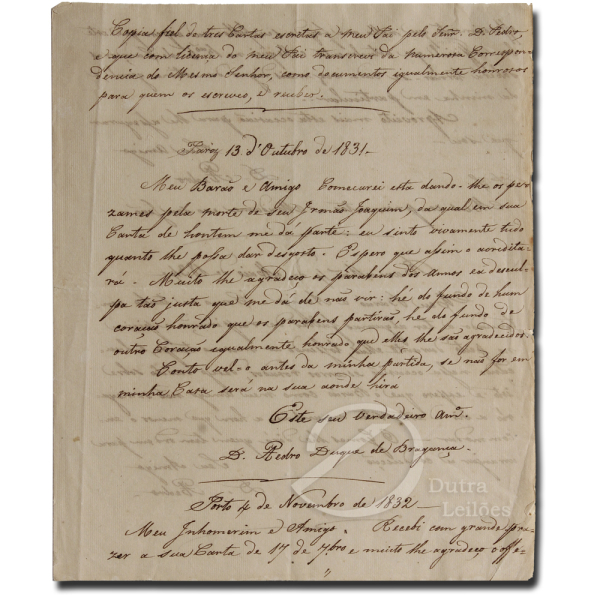 Copia fiel de tres Cartas escritas a meu Pai pelo Senr. D. Pedro,
e que com licença do meu Pai transcrevi da numerosa Correspon
dencia do Mesmo Senhor, como documentos igualmente honrosos
para quem os escreveo, e recebeo.
Pariz 13 d'Outubro de 1831
Meu Barão e Amigo Comecarei esta dando-lhe os pe
zames pela morte de seu Irmão Joaquim, da qual em sua
Carta de hontem me da parte: eu sinto vivamente tudo
quanto lhe possa dar desgosto. Espero que assim o acredita
rá. Muito lhe agradeço os parabens dos annos e a descul
pa tão justa que me dá de não vir: hé do fundo de hum
coração honrado que os parabens partirão, hé do fundo de
outro Coração igualmente honrado que elles lhe são agradecidos.
Conto vel-o antes da minha partida, se não for em
minha Casa será na sua aonde hira
Este seu verdadeiro Amo.
D. Pedro Duque de Bragança.
Porto 4 de Novembro de 1832
Meu Inhomerim e Amigo. Recebi com grande pra
zer a sua Carta de 17 de 7bro e muito lhe agradeço o offe-
"
Dutra
Leilões